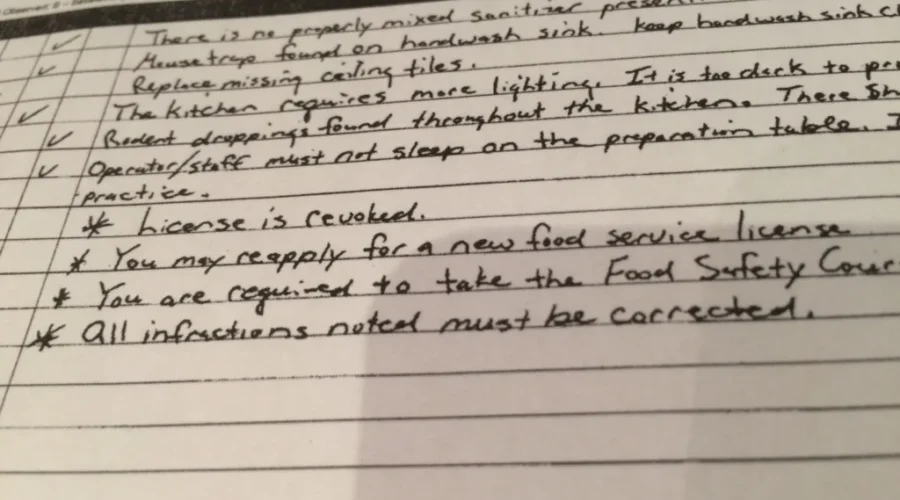 There is no properly mixed sanitizer
Mousetrap found on handwash sink. Keep handwash sink
Replace missing ceiling tiles.
The kitchen requires more lighting. It is too dark to
Rodent droppings found throughout the kitchen. There
Operator/staff must not sleep on the preparation table.
practice.
* License is revoked.
* You may reapply for a new food service license
* You are required to take the Food Safety
* All infractions noted must be corrected.